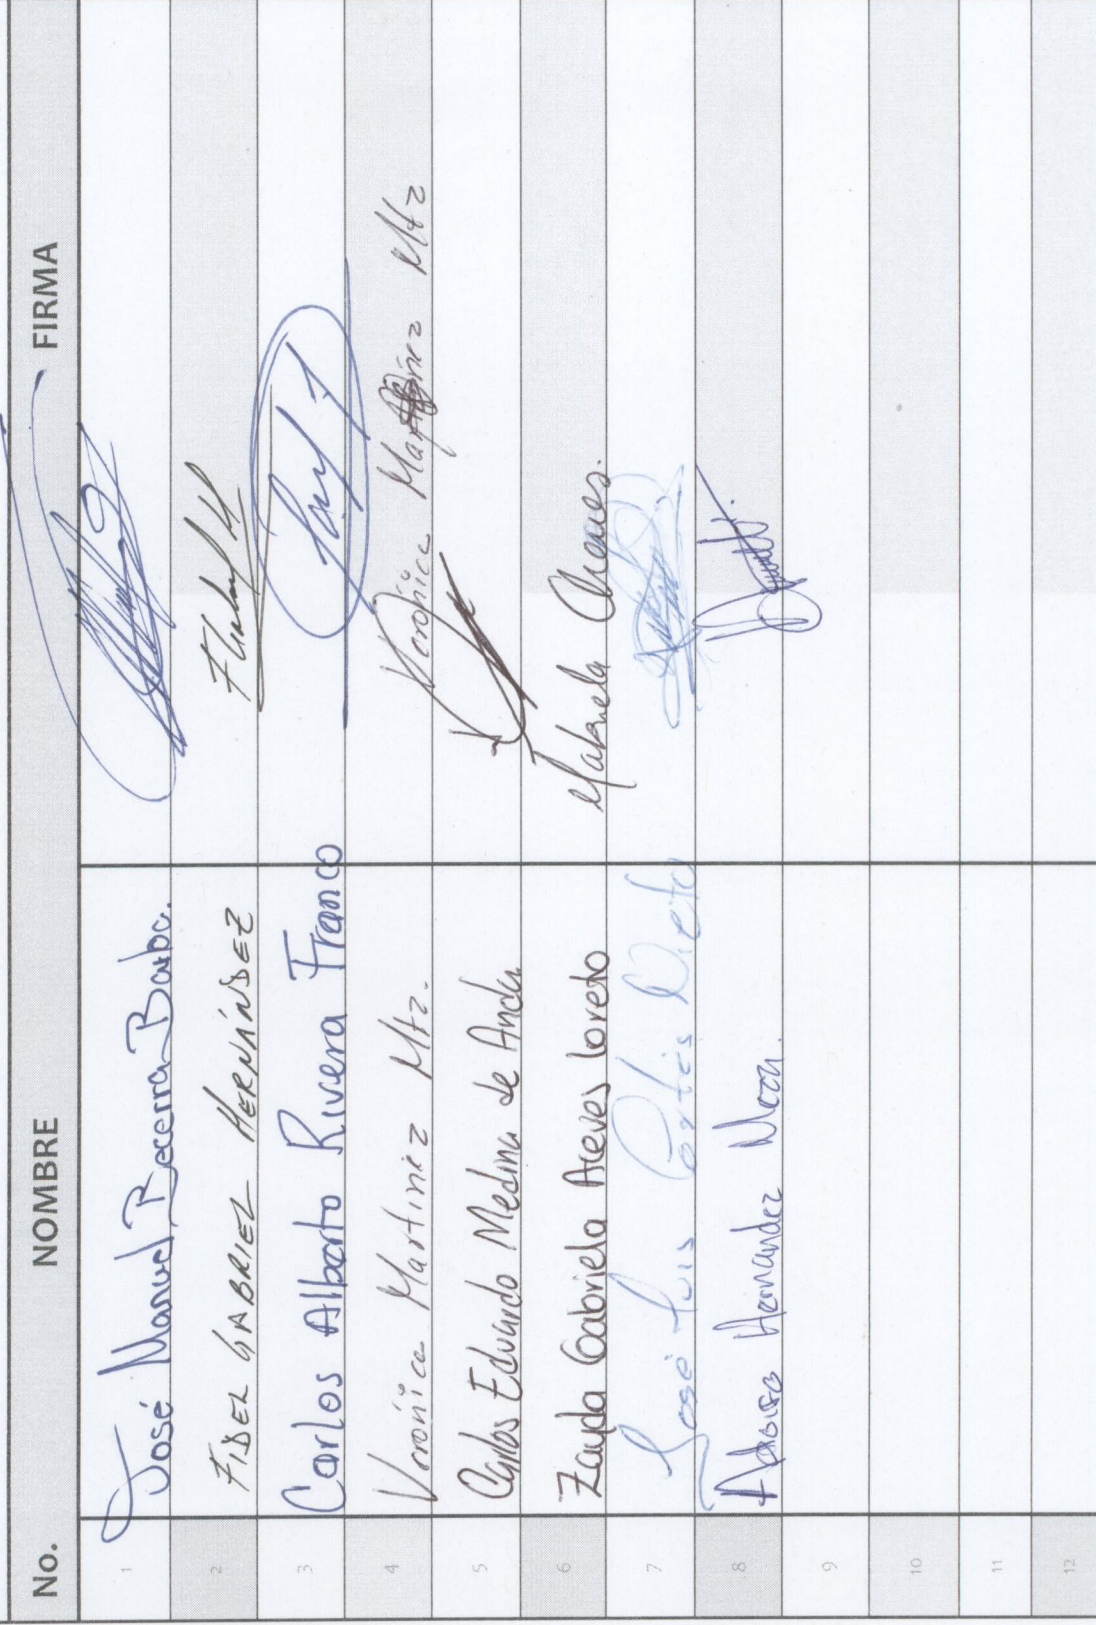 No. NOMBRE FIRMA
1 José Manuel Becerra Barba.
2 FIDEL GABRIEL HERNÁNDEZ
3 Carlos Alberto Rivera Franco
4 Veronica Martinez Mtz. Veronica Martinez Mtz
5 Carlos Eduardo Medina de Anda
6 Zayda Gabriela Aceves Loreto Gabriela Aceves.
7 José Luis Cortés Nieto
8 Hernandez
9
10
11
12